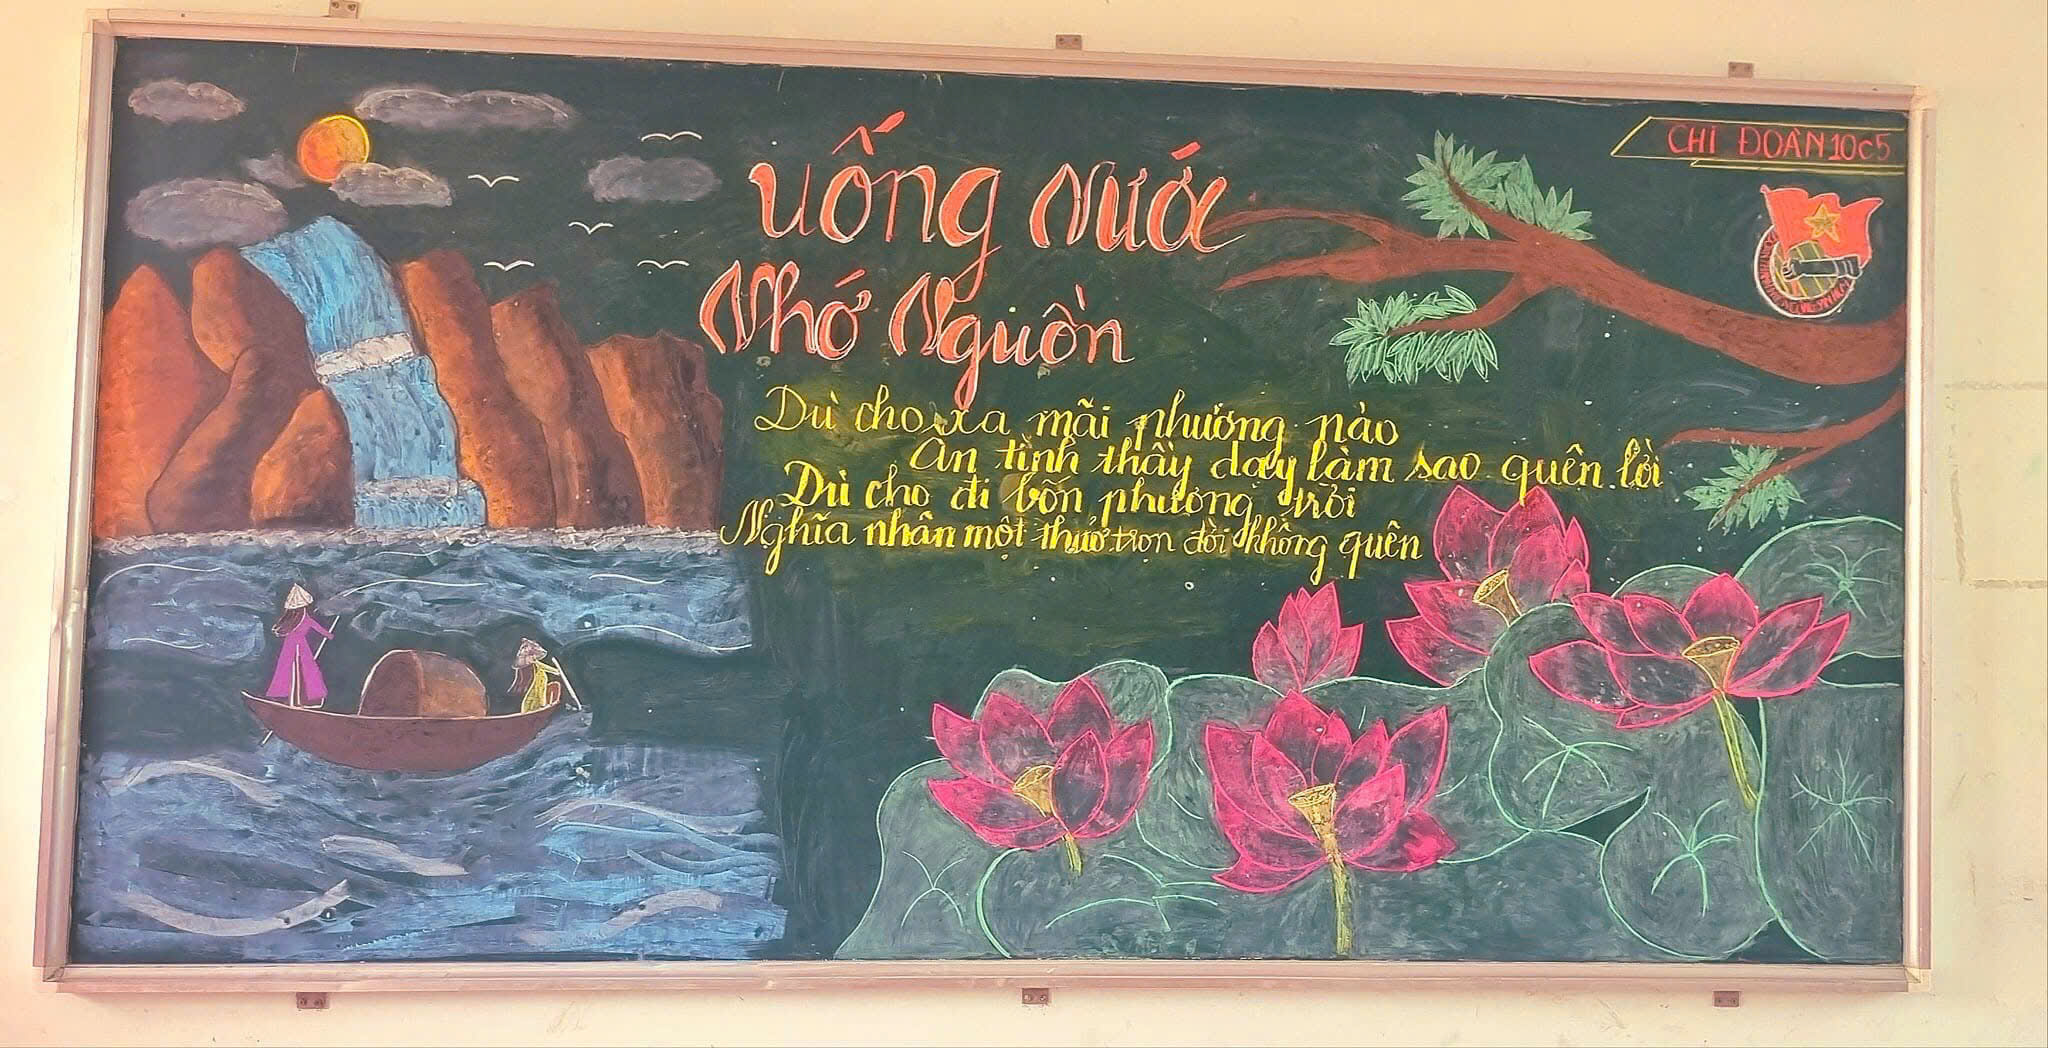 Uống Nước
Nhớ Nguồn
CHI ĐOÀN 10C5
Dù cho xa mãi phương nào
Ân tình thầy dạy làm sao quên lời
Dù cho đi bốn phương trời
Nghĩa nhân một thuở trọn đời không quên